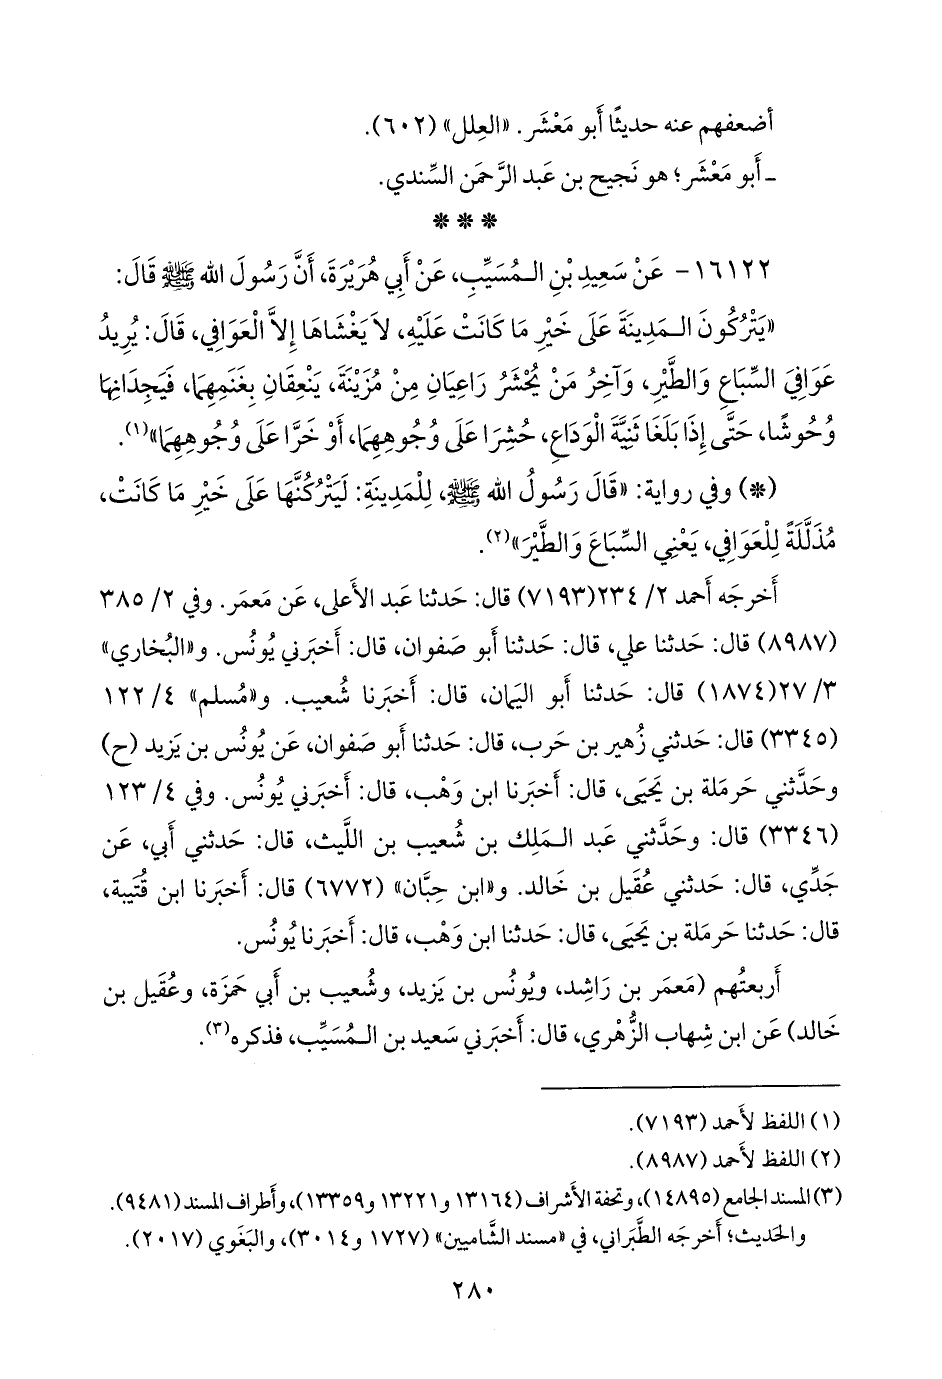 أضعفهم عنه حديثًا أَبو مَعْشَر. «العِلل» (٦٠٢).
ـ أَبو مَعْشَر؛ هو نَجيح بن عَبد الرَّحمَن السِّندي.
* * *
١٦١٢٢ - عَنْ سَعِيدِ بْنِ الـمُسَيِّبِ، عَنْ أَبِي هُرَيْرَةَ، أَنَّ رَسُولَ الله ﷺ قَالَ:
«يَتْرُكُونَ الـمَدِينَةَ عَلَى خَيْرِ مَا كَانَتْ عَلَيْهِ، لَا يَغْشَاهَا إِلاَّ الْعَوَافِي، قَالَ: يُرِيدُ
عَوَافِيَ السِّبَاعِ وَالطَّيْرِ، وَآخِرُ مَنْ يُحْشَرُ رَاعِيَانِ مِنْ مُزَيْنَةَ، يَنْعِقَانِ بِغَنَمِهِمَا، فَيَجِدَانِهَا
وُحُوشًا، حَتَّى إِذَا بَلَغَا ثَنِيَّةَ الْوَدَاعِ، حُشِرَا عَلَى وُجُوهِهِمَا، أَوْ خَرَّا عَلَى وُجُوهِهِمَا»(١).
(*) وفي رواية: «قَالَ رَسُولُ الله ﷺ، لِلْمَدِينَةِ: لَيَتْرُكُنَّهَا عَلَى خَيْرِ مَا كَانَتْ،
مُذَلَّلَةً لِلْعَوَافِي، يَعْنِي السِّبَاعَ وَالطَّيْرَ»(٢).
أَخرجَه أَحمد ٢/ ٢٣٤(٧١٩٣) قال: حَدثنا عَبد الأَعلى، عَن مَعمَر. وفي ٢/ ٣٨٥
(٨٩٨٧) قال: حَدثنا علي، قال: حَدثنا أَبو صَفوان، قال: أَخبَرني يُونُس. و«البُخاري»
٣/ ٢٧(١٨٧٤) قال: حَدثنا أَبو اليَمان، قال: أَخبَرنا شُعيب. و«مُسلم» ٤/ ١٢٢
(٣٣٤٥) قال: حَدثني زُهير بن حَرب، قال: حَدثنا أَبو صَفوان، عَن يُونُس بن يَزيد (ح)
وحَدَّثني حَرملة بن يَحيَى، قال: أَخبَرنا ابن وَهْب، قال: أَخبَرني يُونُس. وفي ٤/ ١٢٣
(٣٣٤٦) قال: وحَدَّثني عَبد الـمَلِك بن شُعيب بن اللَّيث، قال: حَدثني أَبي، عَن
جَدِّي، قال: حَدثني عُقَيل بن خَالد. و«ابن حِبَّان» (٦٧٧٢) قال: أَخبَرنا ابن قُتَيبة،
قال: حَدثنا حَرملة بن يَحيَى، قال: حَدثنا ابن وَهْب، قال: أَخبَرنا يُونُس.
أَربعتُهم (مَعمَر بن رَاشِد، ويُونُس بن يَزيد، وشُعيب بن أَبي حَمزَة، وعُقَيل بن
خَالد) عَن ابن شِهاب الزُّهْري، قال: أَخبَرني سَعيد بن الـمُسَيِّب، فذكره(٣).
(١) اللفظ لأَحمد (٧١٩٣).
(٢) اللفظ لأَحمد (٨٩٨٧).
(٣) المسند الجامع (١٤٨٩٥)، وتحفة الأَشراف (١٣١٦٤ و١٣٢٢١ و١٣٣٥٩)، وأَطراف المسند (٩٤٨١).
والحَديث؛ أَخرجَه الطَّبَراني، في «مسند الشَّاميين» (١٧٢٧ و٣٠١٤)، والبَغَوي (٢٠١٧).
٢٨٠